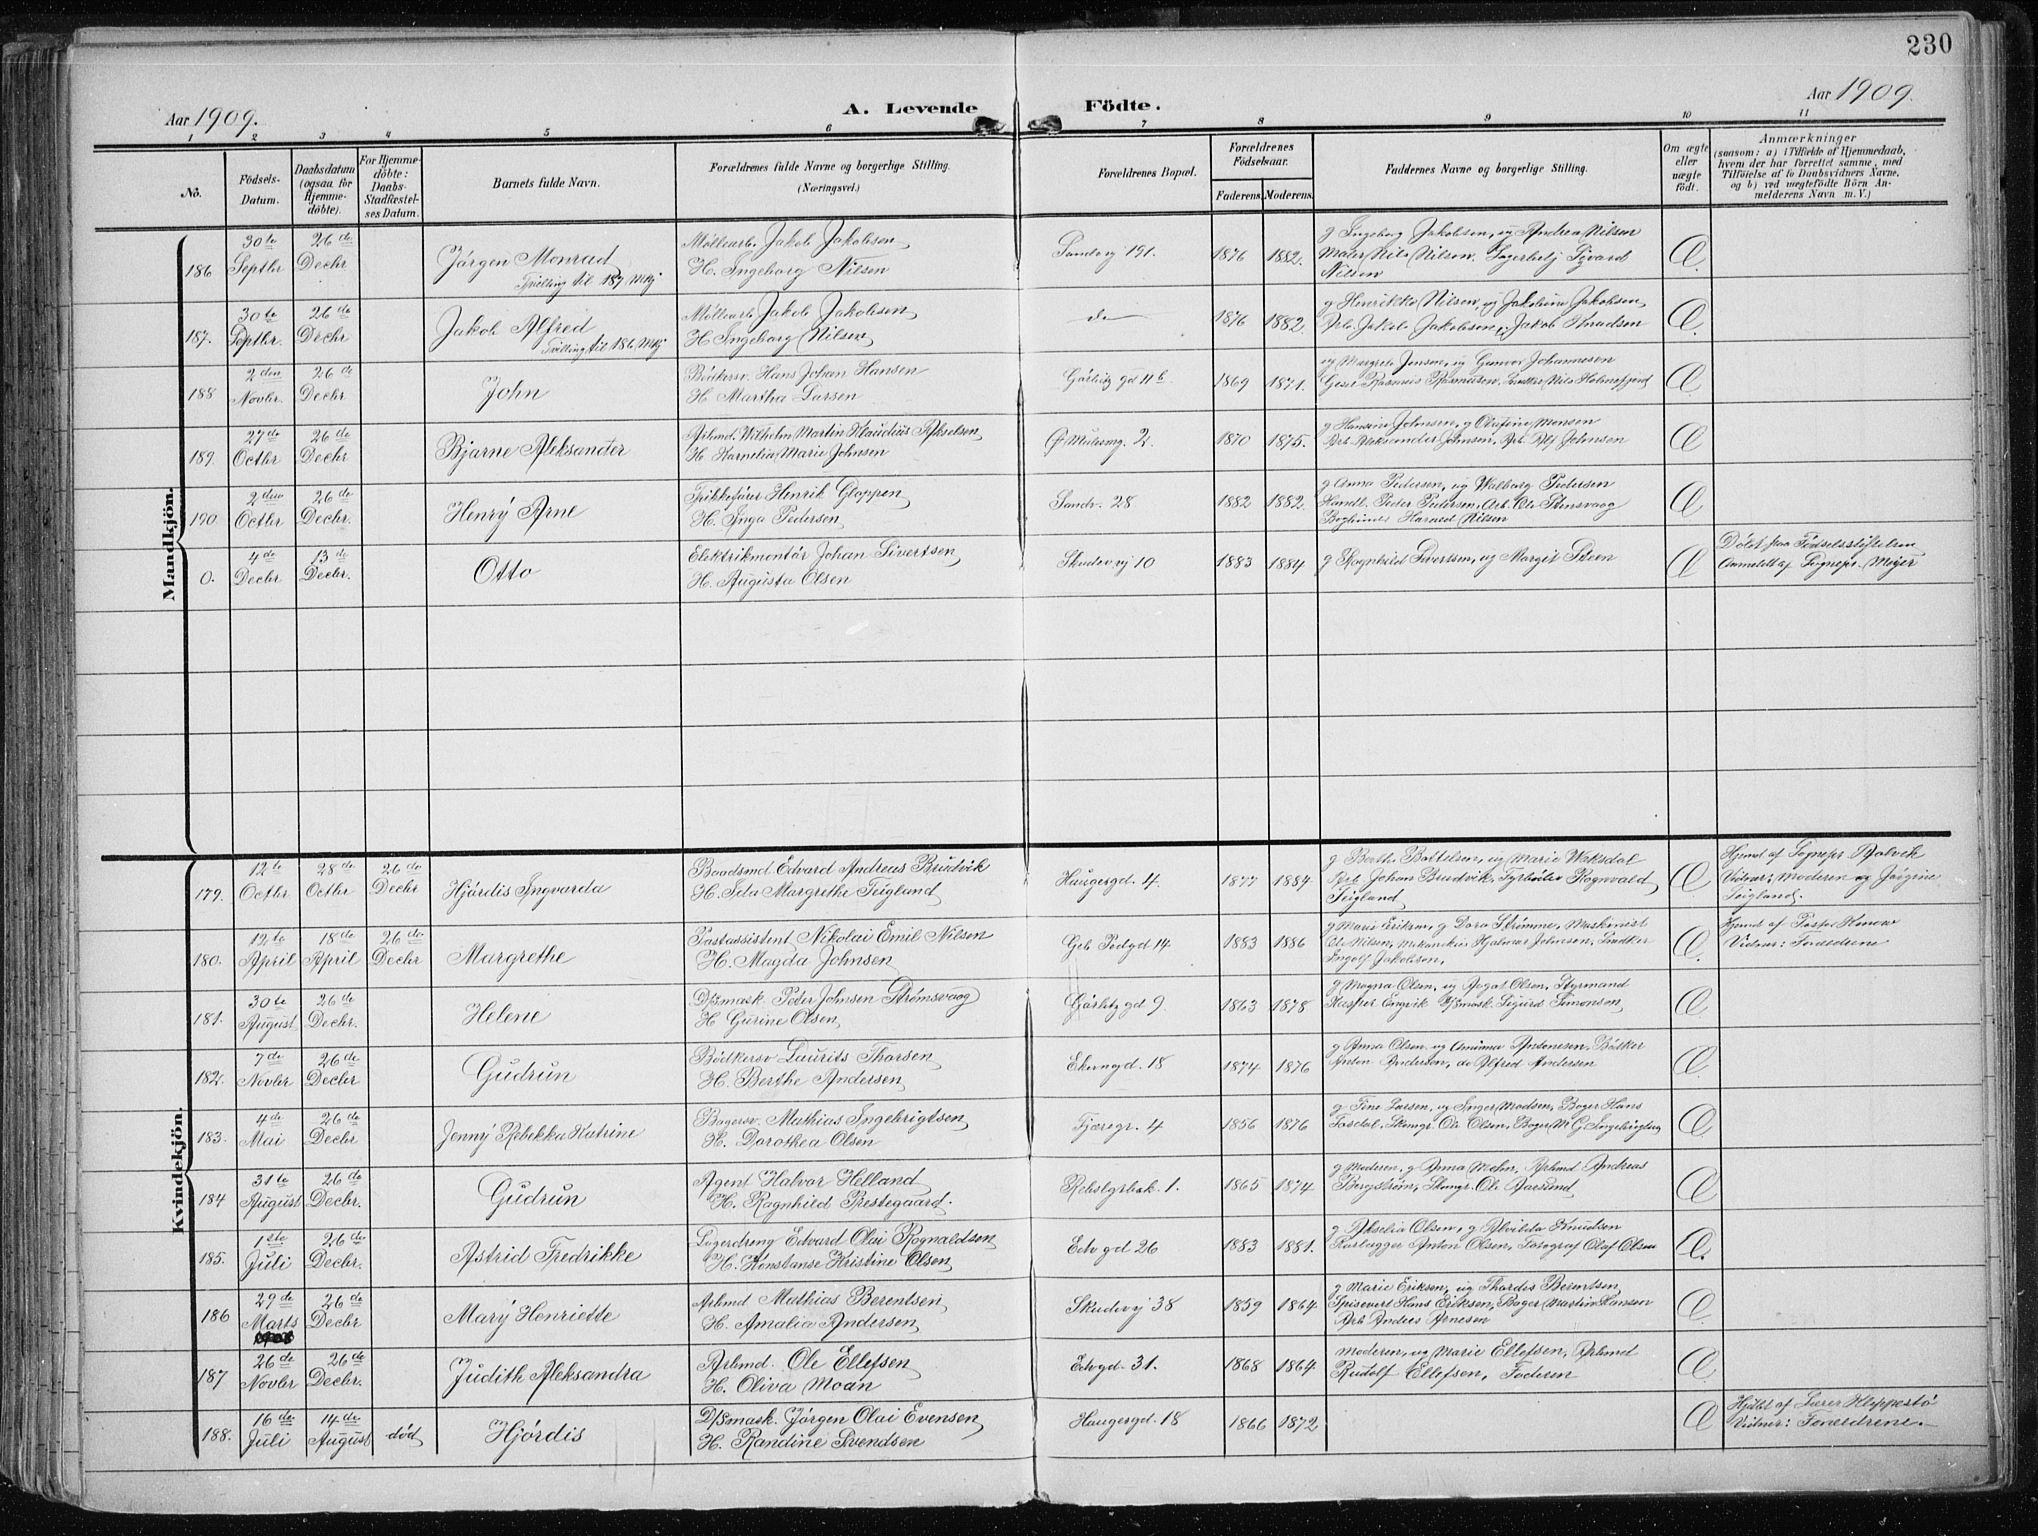 230
Aar 1909.
A. Levende Födte.
Aar 1909.
1 2 3 4 5 6 7 8 9 10 11
No.
Födsels-Datum.
Daabsdatum (ogsaa for Hjemme-döbte).
For Hjemme-döbte: Daabs-Stadfæstel-ses Datum.
Barnets fulde Navn.
Forældrenes fulde Navne og borgerlige Stilling.
(Næringsvei.)
Forældrenes Bopæl.
Forældrenes Födselsaar.
Faderens. Moderens.
Faddernes Navne og borgerlige Stilling.
Om ægte eller uægte født.
Anmærkninger
(saasom: a) i Tilfælde af Hjemmedaab,
hvem der har forrettet samme, med
Tilföielse af to Daabsvidners Navne,
og b) ved uægtefödte Börn An-
melderens Navn m. V.)
Mandkjön.
186 30te Septbr 26de Decbr Jörgen Monrad Tvilling til 187 Mkj Möllearb. Jakob Jakobsen H. Ingeborg Nilsen Sandvvj 191. 1876 1882. g Ingeborg Jakobsen, ug Andrea Nilsen
Maler Nils Nilsen, Sigvard
Nilsen Æ
187. 30te Septbr. 26de Decbr Jakob Alfred Tvilling til 186 Mkj Möllearb Jakob Jakobsen H Ingeborg Nilsen do 1876 1882. g Henrikke Nilsen, ug Jakobine Jakobsen
Arb. Jakob Jakobsen, Jakob Knudsen Æ
188 2den Novbr. 26de Decbr. John Bödkersv. Hans Johan Hansen H. Martha Larsen Görbitz gd 11b 1869 1871. ug Margrete Jensen, ug Gunvor Johannesen
Rasmus Rasmusen, Snedker Nils Æ
189. 27de Octbr 26de Decbr Bjarne Aleksander Arbmd. Wilhelm Martin Klaudius Akselsen H. Karnelia Marie Johnsen Ø Muresmg 2. 1870 1875. g Hansine Johnsen, g Olufine Monsen
Arb Aleksander Johnsen, Arb. Alf Johnsen Æ
190. 2den Octbr 26de Decbr. Henry Arne Trikkefører Henrik Gloppen H. Inga Pedersen Sandv. 28 1882 1882. g Anna Pedersen, ug Walborg Pedersen
Handl. Peder Pedersen, Arb. Ole Stensvaag
Nilsen Æ
0. 4de Decbr 13de Decbr. Otto Elektrikmontör Johan Sivertsen H. Augusta Olsen Skudevvj 10 1883 1884 g Ragnhild Sivertsen, ug Margit Steen Æ Döbt paa Födselsstiftelsen
Anmeldt af Sognepr. Meyer
Kvindekjön.
179. 12te Octbr 28de Octbr 26de Decbr Hjördis Ingvarda Baadsmd Edvard Andreas Brudvik H. Margrethe Teigland Haugesgd. 4. 1877 1884. g Berthe Bottelsen, ug Marie Waksdal
Arb. Johan Brudvik, Fyrböder Rognvald
Teigland Æ Hjemd af Sognepr
Vidner: Moderen og
Teigland.
180. 12te April 18de April 26de Decbr Margrethe Postassistent Nikolai Emil Nilsen H. Magda Johnsen Geb Podgd 14 1883 1886 g Marie Eriksen, g Dora Strömme, Maskinist
Ole Nilsen, Mekanikus Hjalmar Johnsen, Snedker
Ingolf Jakobsen, Æ Hjemd af
Vidner: Forældrene
181. 30te August 26de Decbr. Helene D/smask. Peter Johnsen Strömsvaag H Gurine Olsen Görbitz gd 9. 1863 1878 g Magna Olsen, ug Aagot Olsen, Styrmand
Kasper Engvik D/smask. Sigurd Simonsen Æ
182. 7de Novbr 26de Decbr Gudrun Bödkersv Laurits Thorsen H. Berthe Andersen Ekerngd. 18 1874 1876 g Anna Olsen, ug Amunda Antonesen, Bödker
Anton Andersen, do Alfred Andersen Æ
183. 4de Mai 26de Decbr. Jenny Rebekka Katrine Bagersv. Mathias Ingebrigtsen H. Dorothea Olsen Fjæregr. 4 1856 1876 g Tine Larsen, ug Inger Madsen, Bager Hans
Fosdal, Skomgr. Ole Olsen, Bager M G Ingebrigtsen Æ
184 31te August 26de Decbr. Gudrun Agent Halvor Helland H. Ragnhild Prestegaard. 1. 1865 1874 g Moderen, g Anna Mohn, Arbmd Andreas
Bergström, Skomgr. Ole Aarsund Æ
185. 1ste Juli 26de Decbr. Astrid Fredrikke Lagerdreng Edvard Olai Rognaldsen H. Konstanse Kristine Olsen Edvgd 26 1883 1881. g Akselia Olsen, g Alvilda Knudsen
Rörlægger Anton Olsen, Fotograf Olaf Olsen Æ
186 29de Marts 26de Decbr Mary Henriette Arbmd Mathias Berentsen H. Amalia Andersen Skudevvj 38 1859 1864. g Marie Eriksen, ug Thordis Berentsen,
Spisevert Hans Eriksen, Bager Martin Hansen
Arb Anders Arnesen Æ
187 26de Novbr 26de Decbr. Judith Aleksandra Arbmd. Ole Ellefsen H. Oliva Moan Edvgd. 31. 1868 1864 Moderen, ug Marie Ellefsen, Arbmd
Rudolf Ellefsen, Faderen Æ
188. 16de Juli 14de August död Hjördis D/smask. Jörgen Olai Evensen H. Randine Svendsen Haugesgd. 18 1866 1872 Æ Hjdbt af Lærer Kleppestö
Vidner: Forældrene.